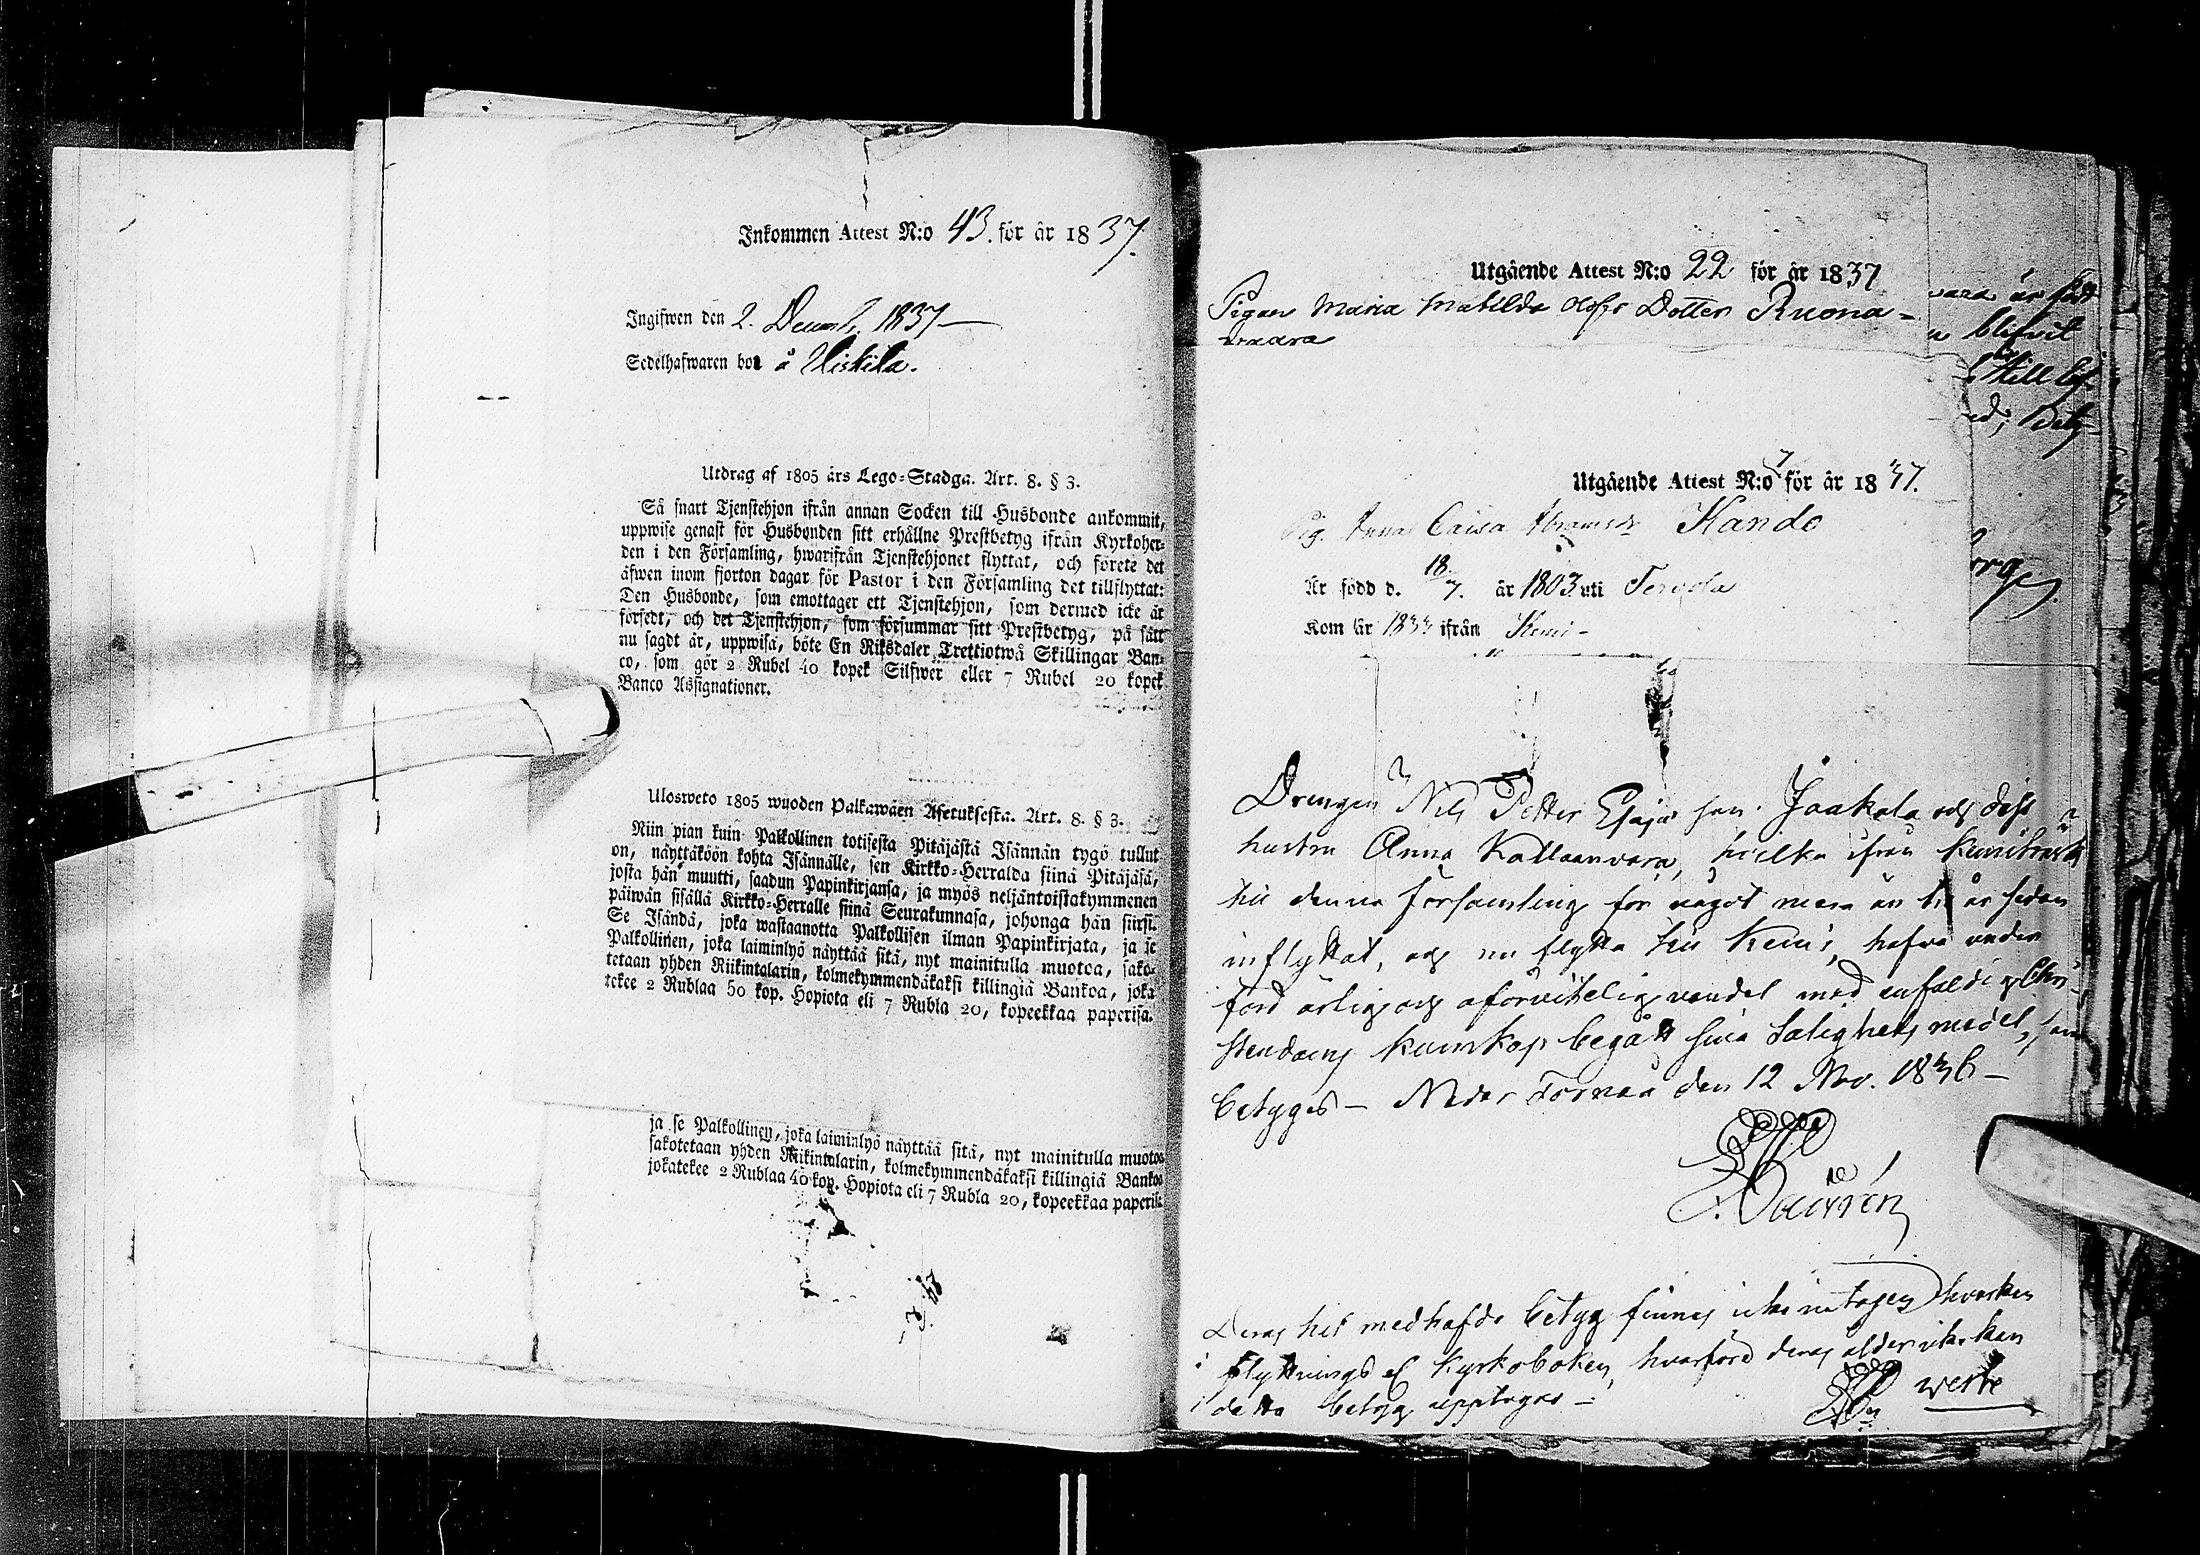 Inkommen Attest N:o 43. för år 1837.
Ingifwen den 2. Decemb. 1837
Sedelhafwaren bor å Uiskila.
Utdrag af 1805 års Lego-Stadga. Art. 8. § 3.
Så snart Tjenstehjon ifrån annan Socken till Husbonde ankommit,
uppwise genast för Husbonden sitt erhållne Prestbetyg ifrån Kyrkoher-
den i den Församling, hwarifrån Tjenstehjonet flyttat, och förete det
äfwen inom fjorton dagar för Pastor i den Församling det tillflyttat:
Den Husbonde, som emottager ett Tjenstehjon, som dermed icke är
försedt, och det Tjenstehjon, som försummar sitt Prestbetyg, på sätt
nu sagdt är, uppwisa, böte En Riksdaler Trettiotwå Skillingar Ban-
co, som gör 2 Rubel 40 kopek Silfwer eller 7 Rubel 20 kopek
Banco Assignationer.
Ulosweto 1805 wuoden Palkawäen Asetuksesta. Art. 8. § 3.
Niin pian kuin Palkollinen toisesta Pitäjästä Isännän tygö tullut
on, näyttäköön kohta Isännälle, sen Kirkko-Herralda siinä Pitäjäsä,
josta hän muutti, saadun Papinkirjansa, ja myös neljäntoistakymmenen
päiwän sisällä Kirkko-Herralle siinä Seurakunnasa, johonga hän siirsi.
Se Isändä, joka wastaanotta Palkollisen ilman Papinkirjata, ja se
Palkollinen, joka laiminlyö näyttää sitä, nyt mainitulla muotoa, sako-
tetaan yhden Riikintalarin, kolmekymmendäkaksi killingiä Bankoa, joka
tekee 2 Rublaa 50 kop. Hopiota eli 7 Rubla 20, kopeekkaa paperisa.
ja se Palkollinen, joka laiminlyö näyttää sitä, nyt mainitulla muotoa
sakotetaan yhden Riikintalarin, kolmekymmendäkaksi killingiä Bankoa
jokatekee 2 Rublaa 40 kop. Hopiota eli 7 Rubla 20, kopeekkaa paperis.
Utgående Attest N:o 22 för år 1837
Pigan Maria Matilda Olofs Dotter Ruona-
waara
wara är född
blifvit
till
Utgående Attest N:o 7 för år 1837.
Pig. Anna Caisa Abramsdr Kando
Är född d. 18/7. år 1803 uti Tervola
Kom år 1833 ifrån Kemi-
Drengen Nils Petter Esaja son Jaakola och dess
hustru Anna Kallaanvara, hvilka ifrån
till denna Församling för något mera än år sedan
inflyttat, och nu flytta till Kemi, hafva under
förd ärlig och oförvitelig vandel med enfaldig Chri-
stendoms kunskap begått sina Salighets medel, som
betyges – Neder Torneå den 12 Nov. 1836 –
Deras hit medhafde betyg finnes icke intagen hvarken
i flyttnings el Kyrkoboken, hvarföre deras ålder icke kan
i detta betyg upptagas –